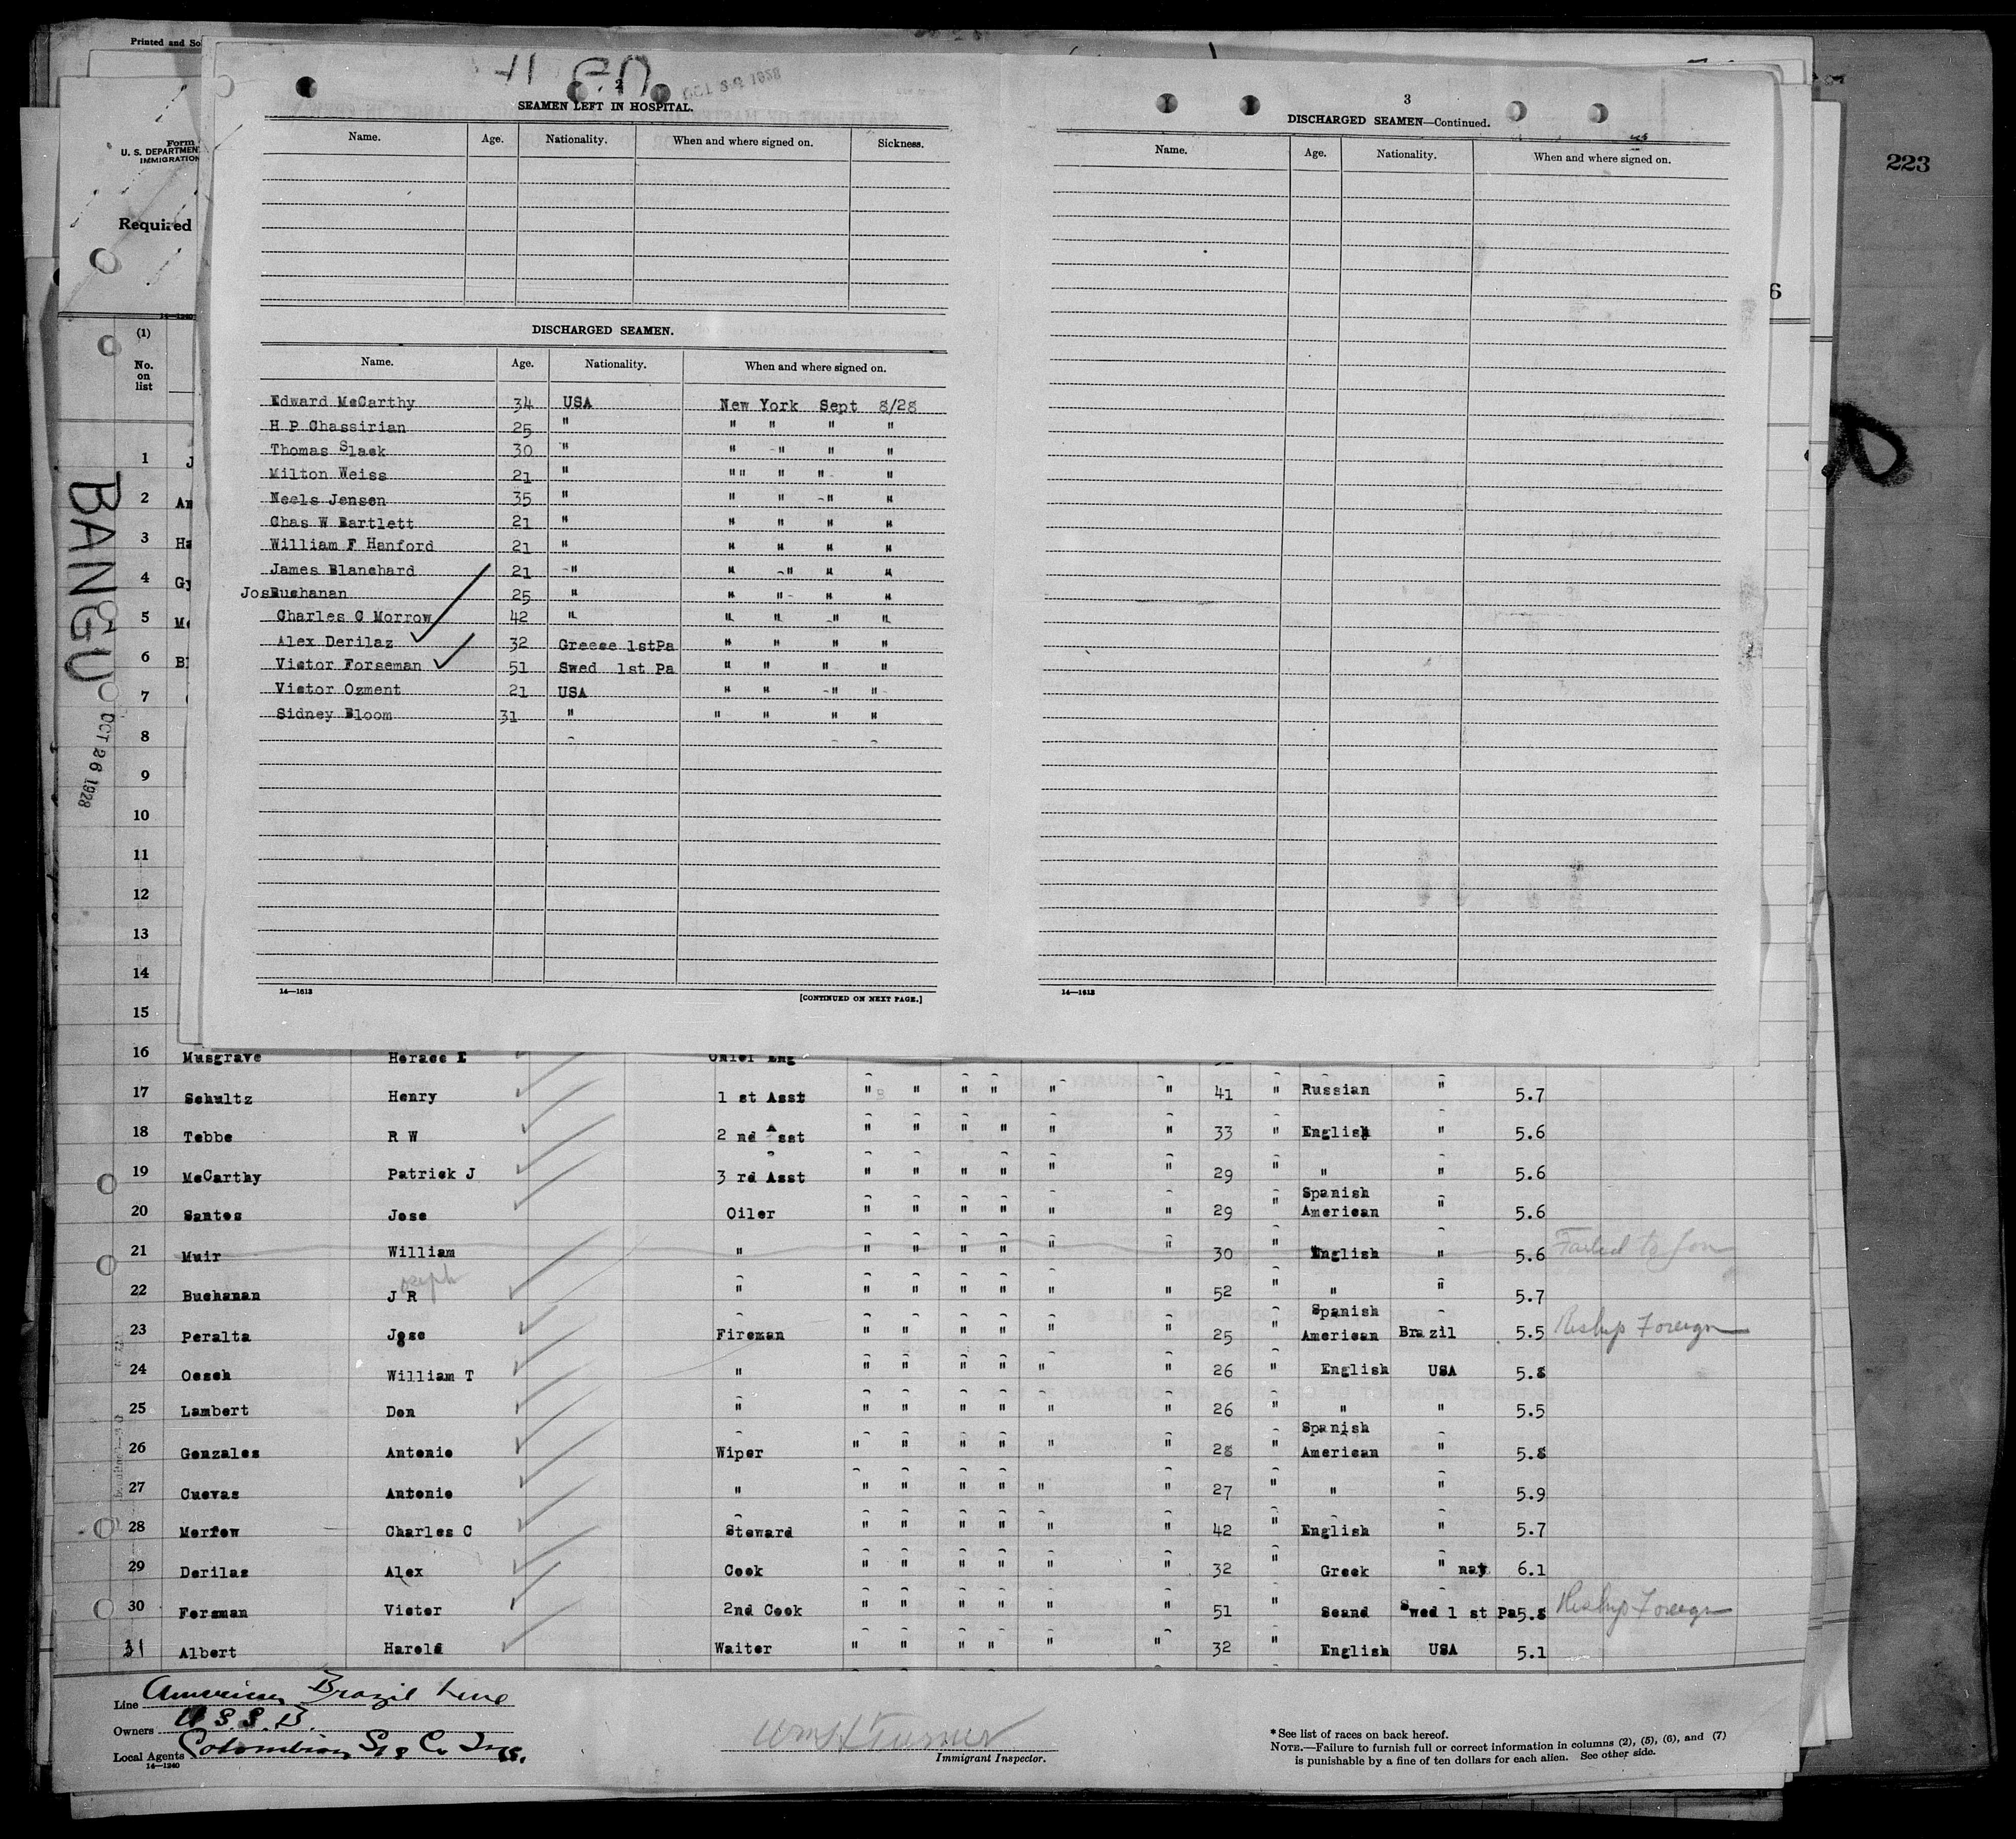 Printed and So
OCT 26 1928
2
SEAMEN LEFT IN HOSPITAL.
Name. Age. Nationality. When and where signed on. Sickness.
DISCHARGED SEAMEN.
Name. Age. Nationality. When and where signed on.
Edward McCarthy 34 USA New York Sept 8/28
H P Chassirian 25 " " " " "
Thomas Slack 30 " " " " "
Milton Weiss 21 " "" " " "
Neels Jensen 35 " " " " "
Chas W Bartlett 21 " " " " "
William F Hanford 21 " " " " "
James Blanchard 21 " " " " "
Jos Buchanan 25 " " " " "
Charles C Morrow 42 " " " " "
Alex Derilaz 32 Greece 1stPa " " " "
Victor Forseman 51 Swed 1st Pa " " " "
Victor Ozment 21 USA " " " "
Sidney Bloom 31 " " " " "
14—1613 [CONTINUED ON NEXT PAGE.]
3
DISCHARGED SEAMEN—Continued.
Name. Age. Nationality. When and where signed on.
14—1613
223
6
Form
U. S. DEPARTMEN
IMMIGRATION
Required
14—1240
(1)
No.
on
list
BANGU
OCT 26 1928
1 J
2 An
3 Ha
4 Gy
5 Mc
6 Bl
7
8
9
10
11
12
13
14
15
16 Musgrave Horace E Chief Eng
17 Schultz Henry 1 st Asst " " " " " " 41 " Russian " 5.7
18 Tebbe R W 2 nd Asst " " " " " " 33 " English " 5.6
19 McCarthy Patrick J 3 rd Asst " " " " " " 29 " " " 5.6
20 Santos Jose Oiler " " " " " " 29 " Spanish American " 5.6
21 Muir William " " " " " " " 30 " English " 5.6 Failed to Join
22 Buchanan J R oseph " " " " " " " 52 " " " 5.7
23 Peralta Jose Fireman " " " " " " 25 " Spanish American Brazil 5.5 Reship Foreign
24 Oesch William T " " " " " " " 26 " English USA 5.8
25 Lambert Don " " " " " " " 26 " " " 5.5
26 Gonzales Antonio Wiper " " " " " " 28 " Spanish American " 5.8
27 Cuevas Antonio " " " " " " " 27 " " " 5.9
28 Morrow Charles C Steward " " " " " " 42 " English " 5.7
29 Derilas Alex Cook " " " " " " 32 " Greek " nat 6.1
30 Forsman Victor 2nd Cook " " " " " " 51 " Scand Swed 1 st Pa 5.8 Reship Foreign
31 Albert Harold Waiter " " " " " " 32 " English USA 5.1
Line American Brazil Line
Owners U.S.S.B.
Local Agents Colombian SS Co Inc.
14—1240
Wm H Turner
Immigrant Inspector.
* See list of races on back hereof.
NOTE.—Failure to furnish full or correct information in columns (2), (5), (6), and (7)
is punishable by a fine of ten dollars for each alien. See other side.